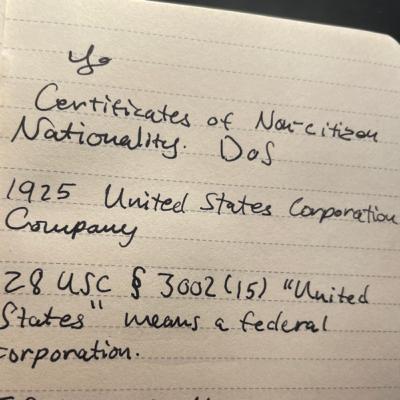 Certificates of Non-citizen
Nationality. DoS
1925 United States Corporation
Company
28 USC § 3002(15) "United
States" means a federal
corporation.